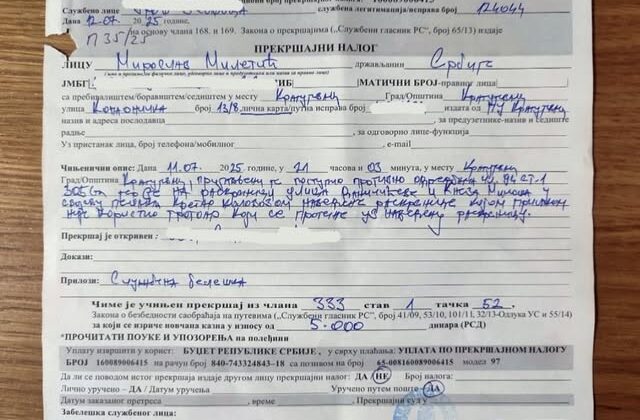 Службено лице службена легитимација/исправа број 124044
Дана 12.07.2025 године,
П 35/25 на основу члана 168. и 169. Закона о прекршајима („Службени гласник РС“, број 65/13) издаје
ПРЕКРШАЈНИ НАЛОГ
ЛИЦУ Мирослав Милетић држављанин Србије
(име и презиме физичког лица, одговорног лица и предузетника или назив за правно лице)
ЈМБГ ПИБ МАТИЧНИ БРОЈ-правног лица
са пребивалиштем/боравиштем/седиштем у месту Крагујевац Град/Општина Крагујевац
улица број 13/8, лична карта/путна исправа број издата од ПУ Крагујевац
назив и адреса послодавца , за предузетнике-назив и седиште
радње , за одговорно лице-функција
Уз пристанак лица, број телефона/мобилног , e-mail
Чињенични опис: Дана 11.07. 2025 године, у 21 часова и 03 минута, у месту Крагујевац
Град/Општина Крагујевац, је поступио противно
на раскрсници улица и Кнеза Милоша у
својству пешака кретао коловозом наведене раскрснице којом приликом
није користио тротоар који се протеже уз наведену раскрсницу.
Прекршај је откривен :
Докази:
Прилози: Службена белешка
Чиме је учињен прекршај из члана 333 став 1 тачка 52,
Закона о безбедности саобраћаја на путевима („Службени гласник РС“, број 41/09, 53/10, 101/11, 32/13-Одлука УС и 55/14)
за који се изриче новчана казна у износу од 5.000 динара (РСД)
*ПРОЧИТАТИ ПОУКЕ И УПОЗОРЕЊА на полеђини
Уплату извршити у корист: БУЏЕТ РЕПУБЛИКЕ СРБИЈЕ , у сврху плаћања: УПЛАТА ПО ПРЕКРШАЈНОМ НАЛОГУ
БРОЈ 160089006415 на рачун број 840-743324843-18 са позивом на број 65-008160089006415 модел 97
Да ли се поводом истог прекршаја издаје другом лицу прекршајни налог: ДА НЕ Број налога:
Лично уручено – ДА / Датум уручења Уручено путем поште ДА
Датум закázаног претреса , време , Прекршајни суд у
Забелешка службеног лица: